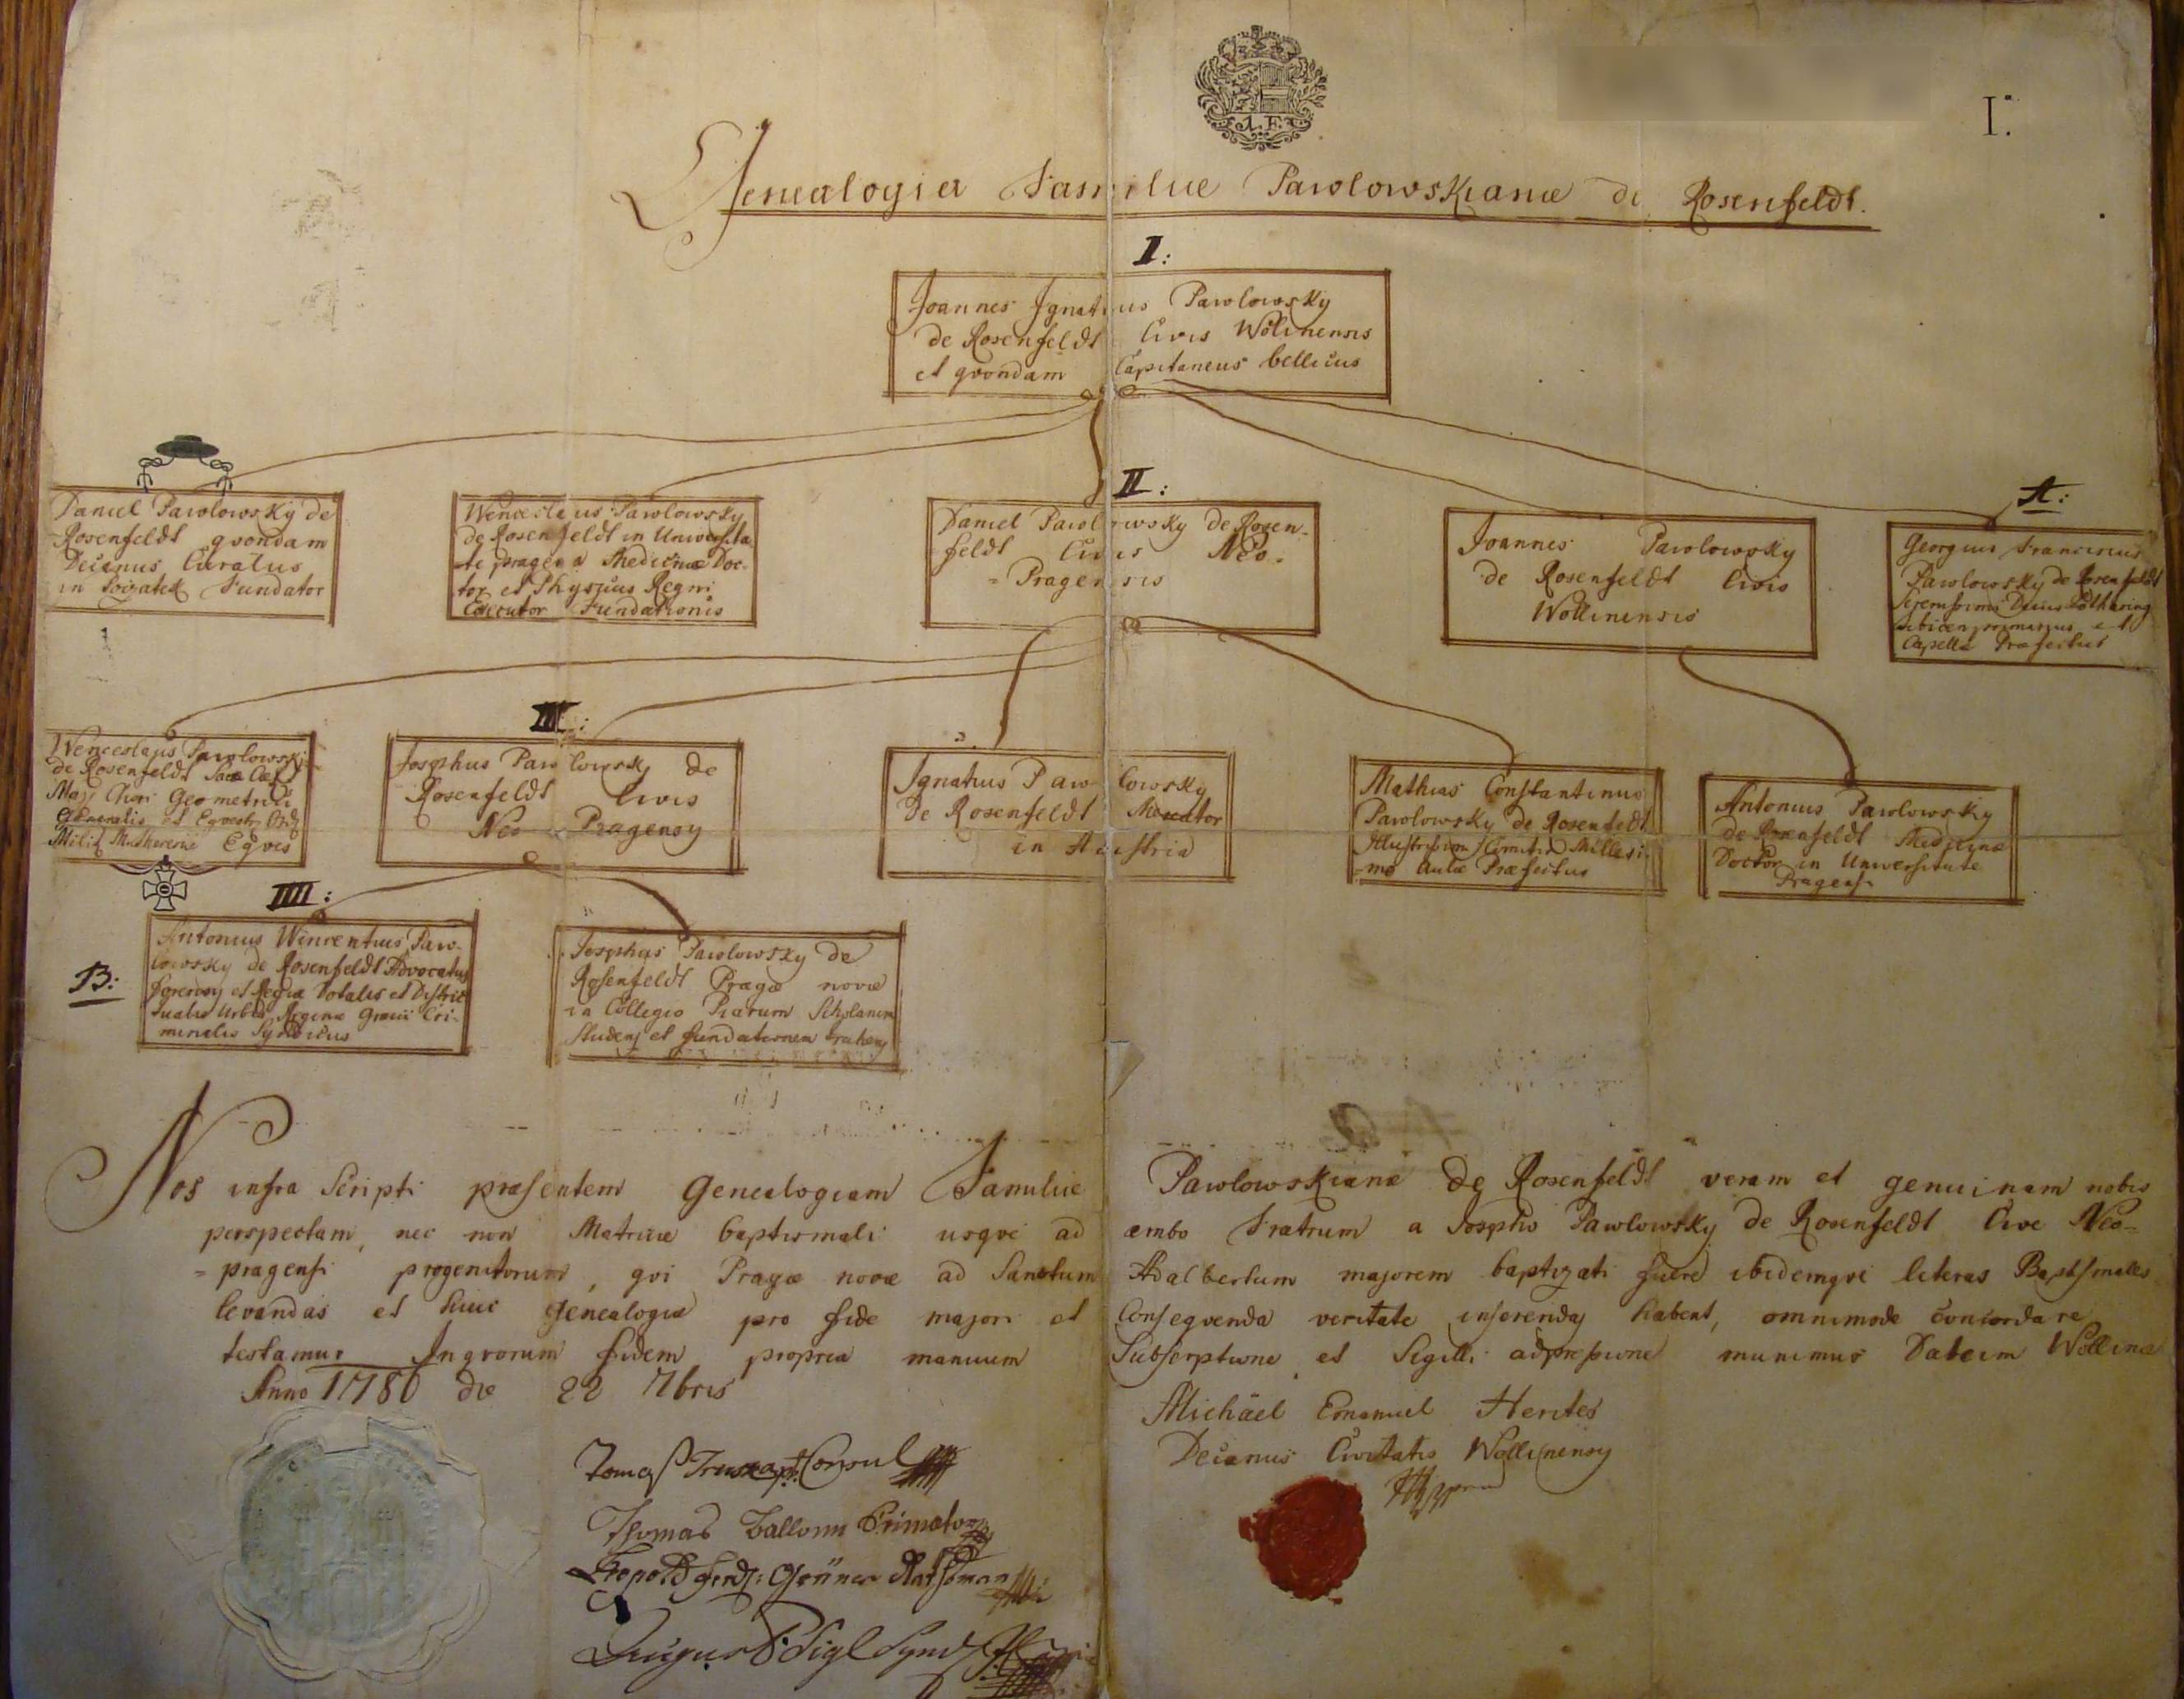 I.
1. F.
Genealogia Familiæ Pawlowskianæ de Rosenfeldt.
I:
Joannes Ignatius Pawlowsky
de Rosenfeldt Civis Wolinensis
et qvondam Capitaneus bellicus
II:
A:
Daniel Pawlowsky de
Rosenfeldt qvondam
Decanus Curatus
in Fundator
Wenceslaus Pawlowsky
de Rosenfeldt in Universita-
te pragena Medicinæ Doc-
tor et Physicus Regni
Executor Fundationis
Daniel Pawlowsky de Rosen-
feldt Civis Neo-
=Pragensis
Joannes Pawlowsky
de Rosenfeldt Civis
Wollinensis
Georgius Franciscus
Pawlowsky de Rosenfeldt
Serenissimi Ducis Lotharing
primarius et
Capellæ Præfectus
III:
Wenceslaus Pawlowski
de Rosenfeldt Sacæ Cæs
Maj Geometricus
Generalis et Eqvestr Ord
Milit Eqves
Josephus Pawlowsky de
Rosenfeldt Civis
Neo Pragensy
Ignatius Pawlowsky
de Rosenfeldt Mercator
in Austria
Mathias Constantinus
Pawlowsky de Rosenfeldt
Illustrissimi Comitis Millesi-
mo Aulæ Præfectus
Antonius Pawlowsky
de Rosenfeldt Medicinæ
Doctor in Universitate
Pragensi
IIII:
B:
Antonius Wincentius Paw-
lowsky de Rosenfeldt Advocatus
forensy et Regiæ Totalis et District
tualis Urbis Reginæ Græcii Cri-
minalis Syndicus
Josephus Pawlowsky de
Rosenfeldt Pragæ novæ
in Collegio Piarum Scholarum
Studens et fundationem trahens
Nos infra Scripti præsentem Genealogiam Familiæ Pawlowskianæ de Rosenfeldt veram et genuinam nobis
perspectam, nec non Matricæ baptismali usqve ad ambo Fratrum a Josepho Pawlowsky de Rosenfeldt Cive Neo=
=pragensi progenitorum, qvi Pragæ novæ ad Sanctum Adalbertum majorem baptizati fuere ibidemqve literas Baptsmales
levandas et huic genealogiæ pro fide majori et Conseqvenda veritate inserendas habent, omnimode concordare
testamur Inqvorum fidem propria manuum Subscriptione et Sigilli adpressione munimus Datum Wollinæ
Anno 1780 die 22 7bris
Michäel Emanuel Herites
Decanus Civitatis Wollinensy
Tomas Consul
Thomas Primator
Leopold Ferd: Grüner Rathsman
August Sigl Synd